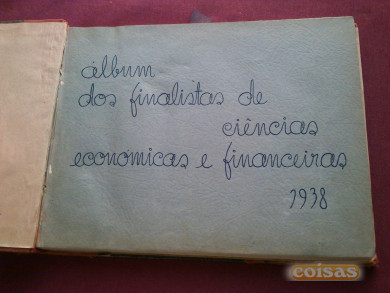 álbum
dos finalistas de
ciências
económicas e financeiras
1938
coisas